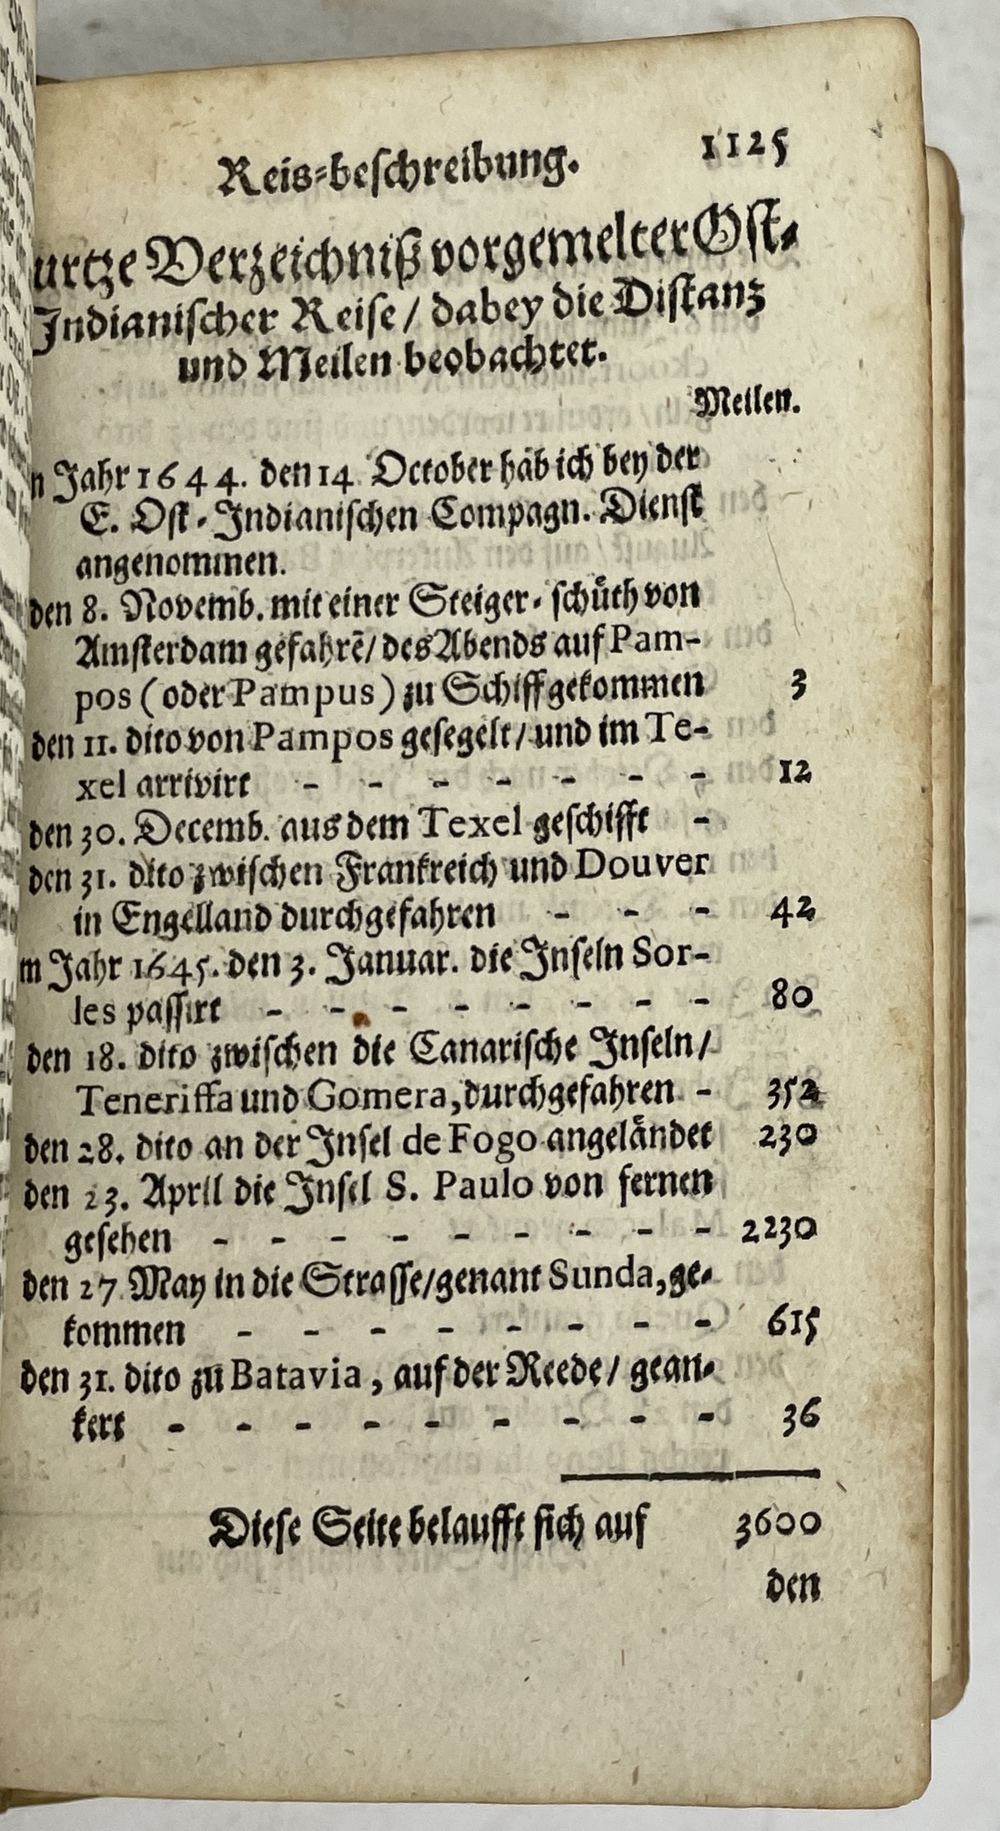 Reis-beschreibung. 1125
urtze Verzeichniß vorgemelter Ost-
Indianischer Reise / dabey die Distanz
und Meilen beobachtet.
Meilen.
n Jahr 1644. den 14 October hab ich bey der
E. Ost-Indianischen Compagn. Dienst
angenommen.
den 8. Novemb. mit einer Steiger-schůth von
Amsterdam gefahrẽ / des Abends auf Pam-
pos (oder Pampus) zu Schiff gekommen 3
den 11. dito von Pampos gesegelt / und im Te-
xel arrivirt - - - - - - - 12
den 30. Decemb. aus dem Texel geschifft -
den 31. dito zwischen Frankreich und Douver
in Engelland durchgefahren - - - 42
m Jahr 1645. den 3. Januar. die Inseln Sor-
les passirt - - - - - - - - 80
den 18. dito zwischen die Canarische Inseln /
Teneriffa und Gomera, durchgefahren - 352
den 28. dito an der Insel de Fogo angelåndet 230
den 23. April die Insel S. Paulo von fernen
gesehen - - - - - - - - - 2230
den 27 May in die Strasse / genant Sunda, ge-
kommen - - - - - - - - 615
den 31. dito zu Batavia, auf der Reede / gean-
kert - - - - - - - - - 36
Diese Seite belaufft sich auf 3600
den